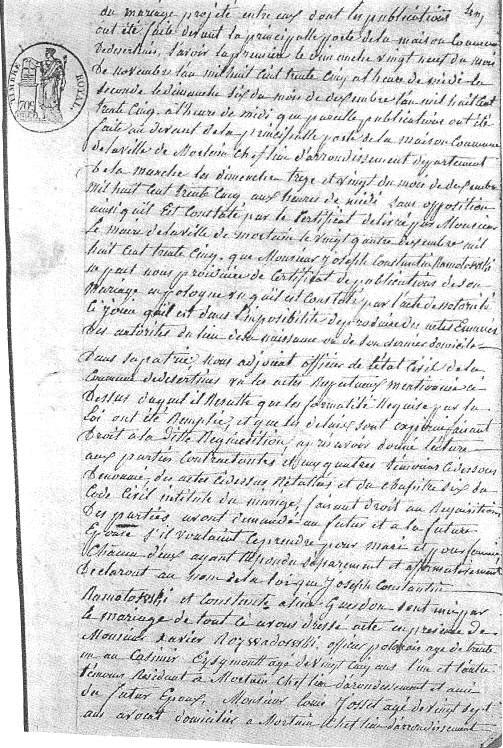 du mariage projeté entre eux dont les publications
ont été faite devant la principalle porte de la maison Commune
de desertines, savoir la premiere le dimanche vingt neuf du mois
de novembre l'an mil huit Cent trente Cinq a l'heure de midi la
seconde le dimanche six du mois de dessembre l'an mil huit Cent
trente Cinq, a l'heure de midi, que pareille publications ont été
faite au devant de la principalle porte de la maison Commune
de la ville de Mortain Chef lieu d'arrondissement departement
de la manche les dimanches treze et vingt du mois de dessembre
mil huit Cent trente Cinq aux heures de midi, sans opposition
ainsi qu'il Est Constaté par le Certificat delivré par Monsieur
le maire de la ville de mortain le vingt quatre dessembre mil
huit Cent trente Cinq, que Monsieur Joseph Constantin Ramotowski
ne peut nous produire de Certificat de publications de son
mariage en pologne vu qu'il est Constaté par l'acte de notorieté
qu'il est dans l'impossibilité de produire des actes Emanés
des autorités du lieu de sa naissance ou de son dernier domicile
Dans sa patrie, nous adjoint officier de l'état Civil de la
Commune de desertines vu les actes Respectueux mentionnés ci
Dessus duquel il Resulte que les formalité Requise par la
Loi ont été Remplie, et que les delais sont expirés, faisant
Droit a la ditte Requisition, apres avoir donné lecture
aux parties Contractantes et aux quatre temoins ci dessous
Denommé, des actes ci dessus Relatées et du chapitre six du
Code Civil intitulé du mariage, faisant droit au Requisitoire
Des parties avons demandé au futur et a la future
Epouse s'il voulaient se prendre pour mari et pour femme
Chacun d'eux ayant Repondu separement et affirmativement
Declarons au nom de la loi que Joseph Constantin
Ramotowski et Constante Guesdon sont unis par
le mariage de tout ce avons dressé acte en presence de
Monsieur xavier Rozwadowski, officier polonais age de trente
un an Casimir Eysymontt age de vingt Cinq ans l'un et l'autre
temoins Residant a Mortain Chef lieu d'arrondissement et amis
du futur Epoux, Monsieur Louis Josset age de vingt sept
ans avocat domicilier a Mortain Chef lieu d'arrondissement
TIMBRE ROYAL